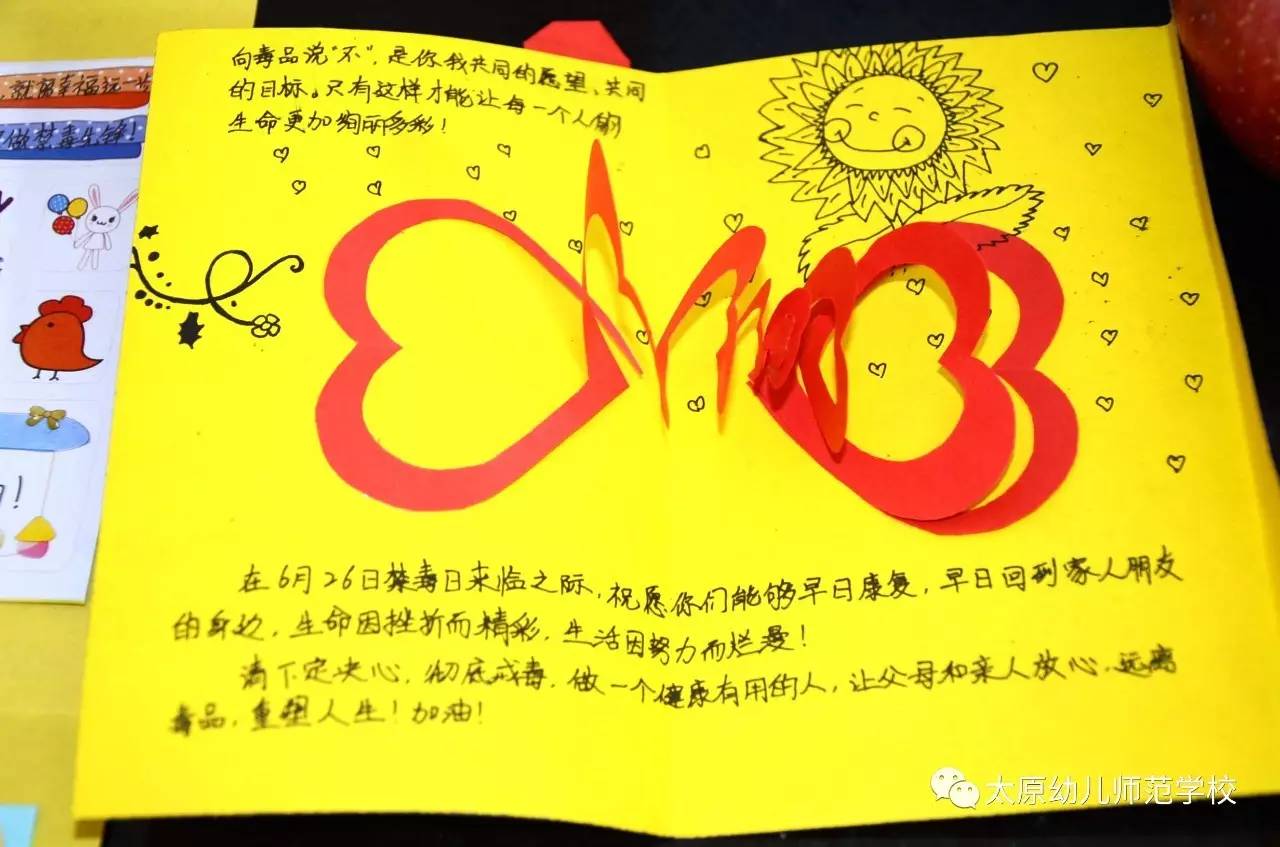 向毒品说"不"，是你我共同的愿望、共同
的目标。只有这样才能让每一个人的
生命更加绚丽多彩！
做禁毒先锋！
在6月26日禁毒日来临之际，祝愿你们能够早日康复，早日回到家人朋友
的身边，生命因挫折而精彩，生活因努力而烂漫！
请下定决心，彻底戒毒，做一个健康有用的人，让父母和亲人放心，远离
毒品，重塑人生！加油！
太原幼儿师范学校